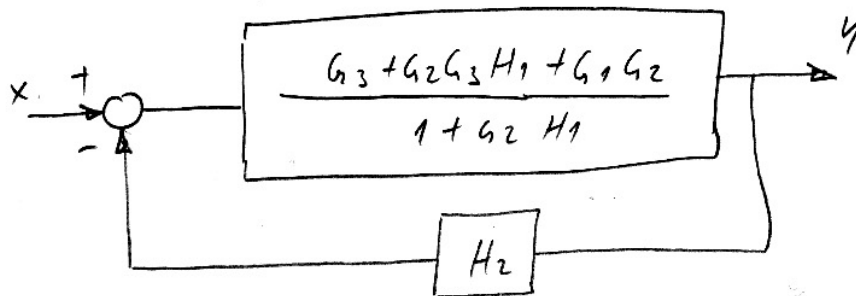 y
G3 + G2G3H1 + G1G2
x +
1 + G2 H1
-
H2